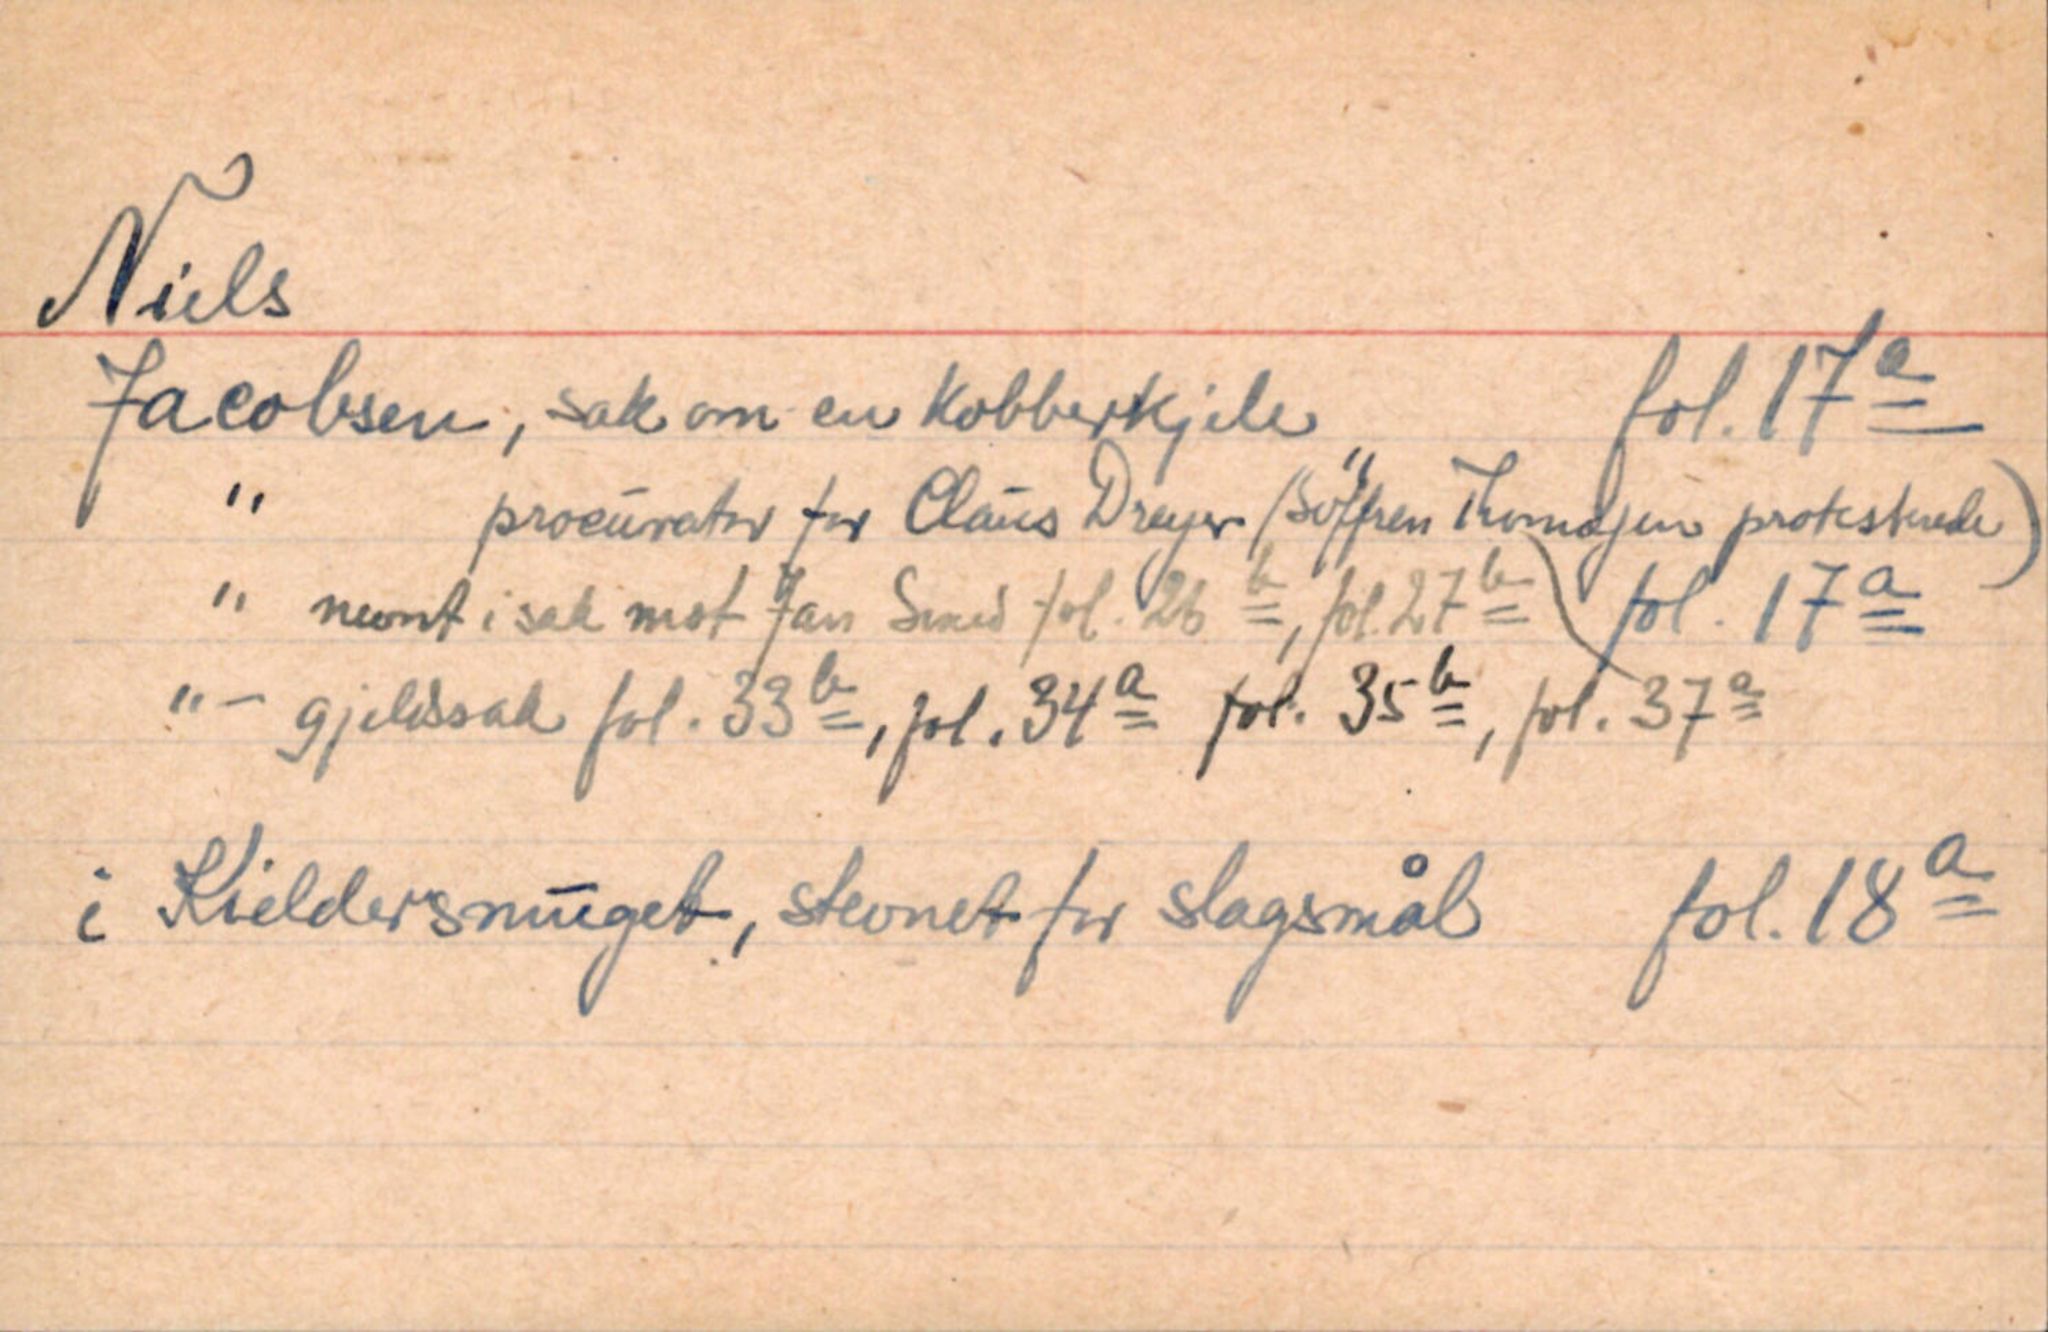 Niels
Jacobsen, sak om en Kobberkjele fol. 17a
" procurator for Claus Dreyer (Söffren Thomasen protesterede)
" nevnt i sak mot Jan Smed fol. 26b, fol. 27b fol. 17a
" - gjeldssak fol. 33b, fol. 34a fol. 35b, fol. 37a
i Kieldersmuget, stevnet for slagsmål fol. 18a